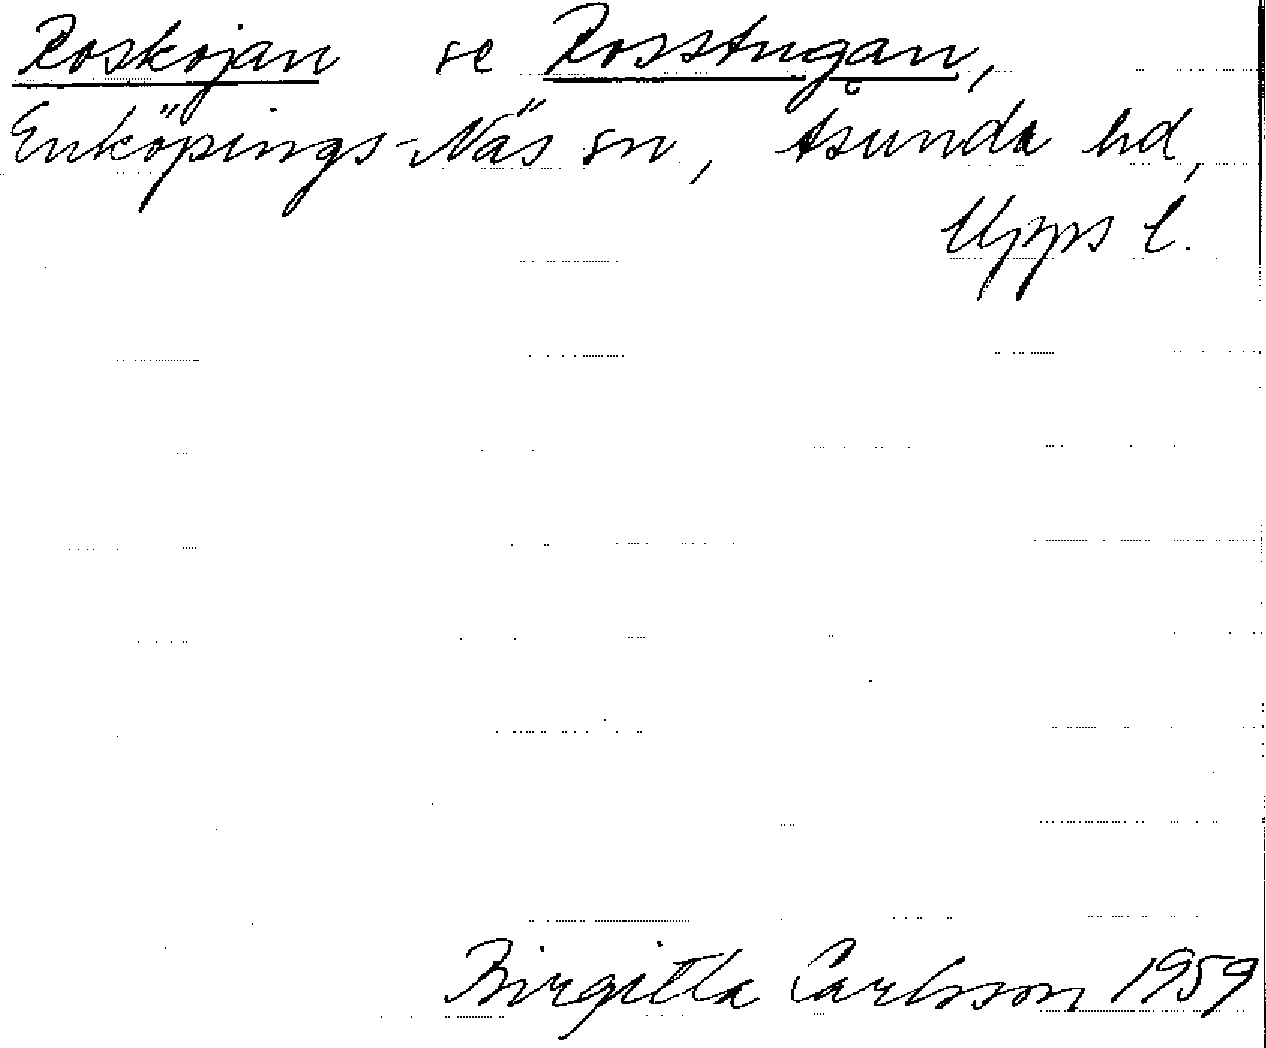 Roskojan se Rosstugan,
Enköpings-Näs sn, Åsunda hd,
Upps l.
Birgitta Carlsson 1959